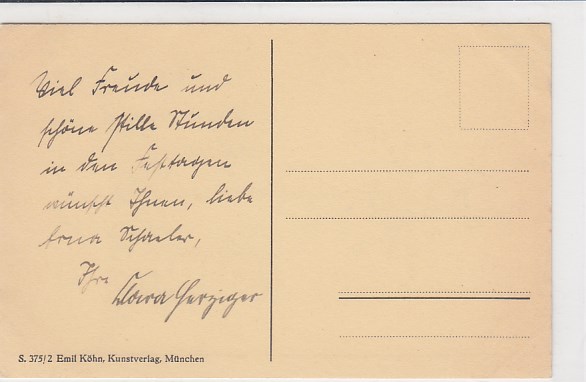 Viel Freude und
schöne stille Stunden
in den Festtagen
wünscht Ihnen, liebe
Erna Schaeler,
Ihre
Clara Herziger
S. 375/2 Emil Köhn, Kunstverlag, München